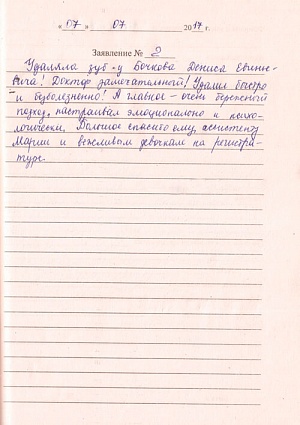 « 07 » 07 2017 г.
Заявление № 2
Удаляла зуб у Бочкова Дениса Евгень-
вича! Доктор замечательный! Удалил быстро
и безболезненно! А главное – очень бережный
подход, настраивал эмоционально и психо-
логически. Большое спасибо ему, ассистенту
Марии и вежливым девочкам на регистра-
туре.